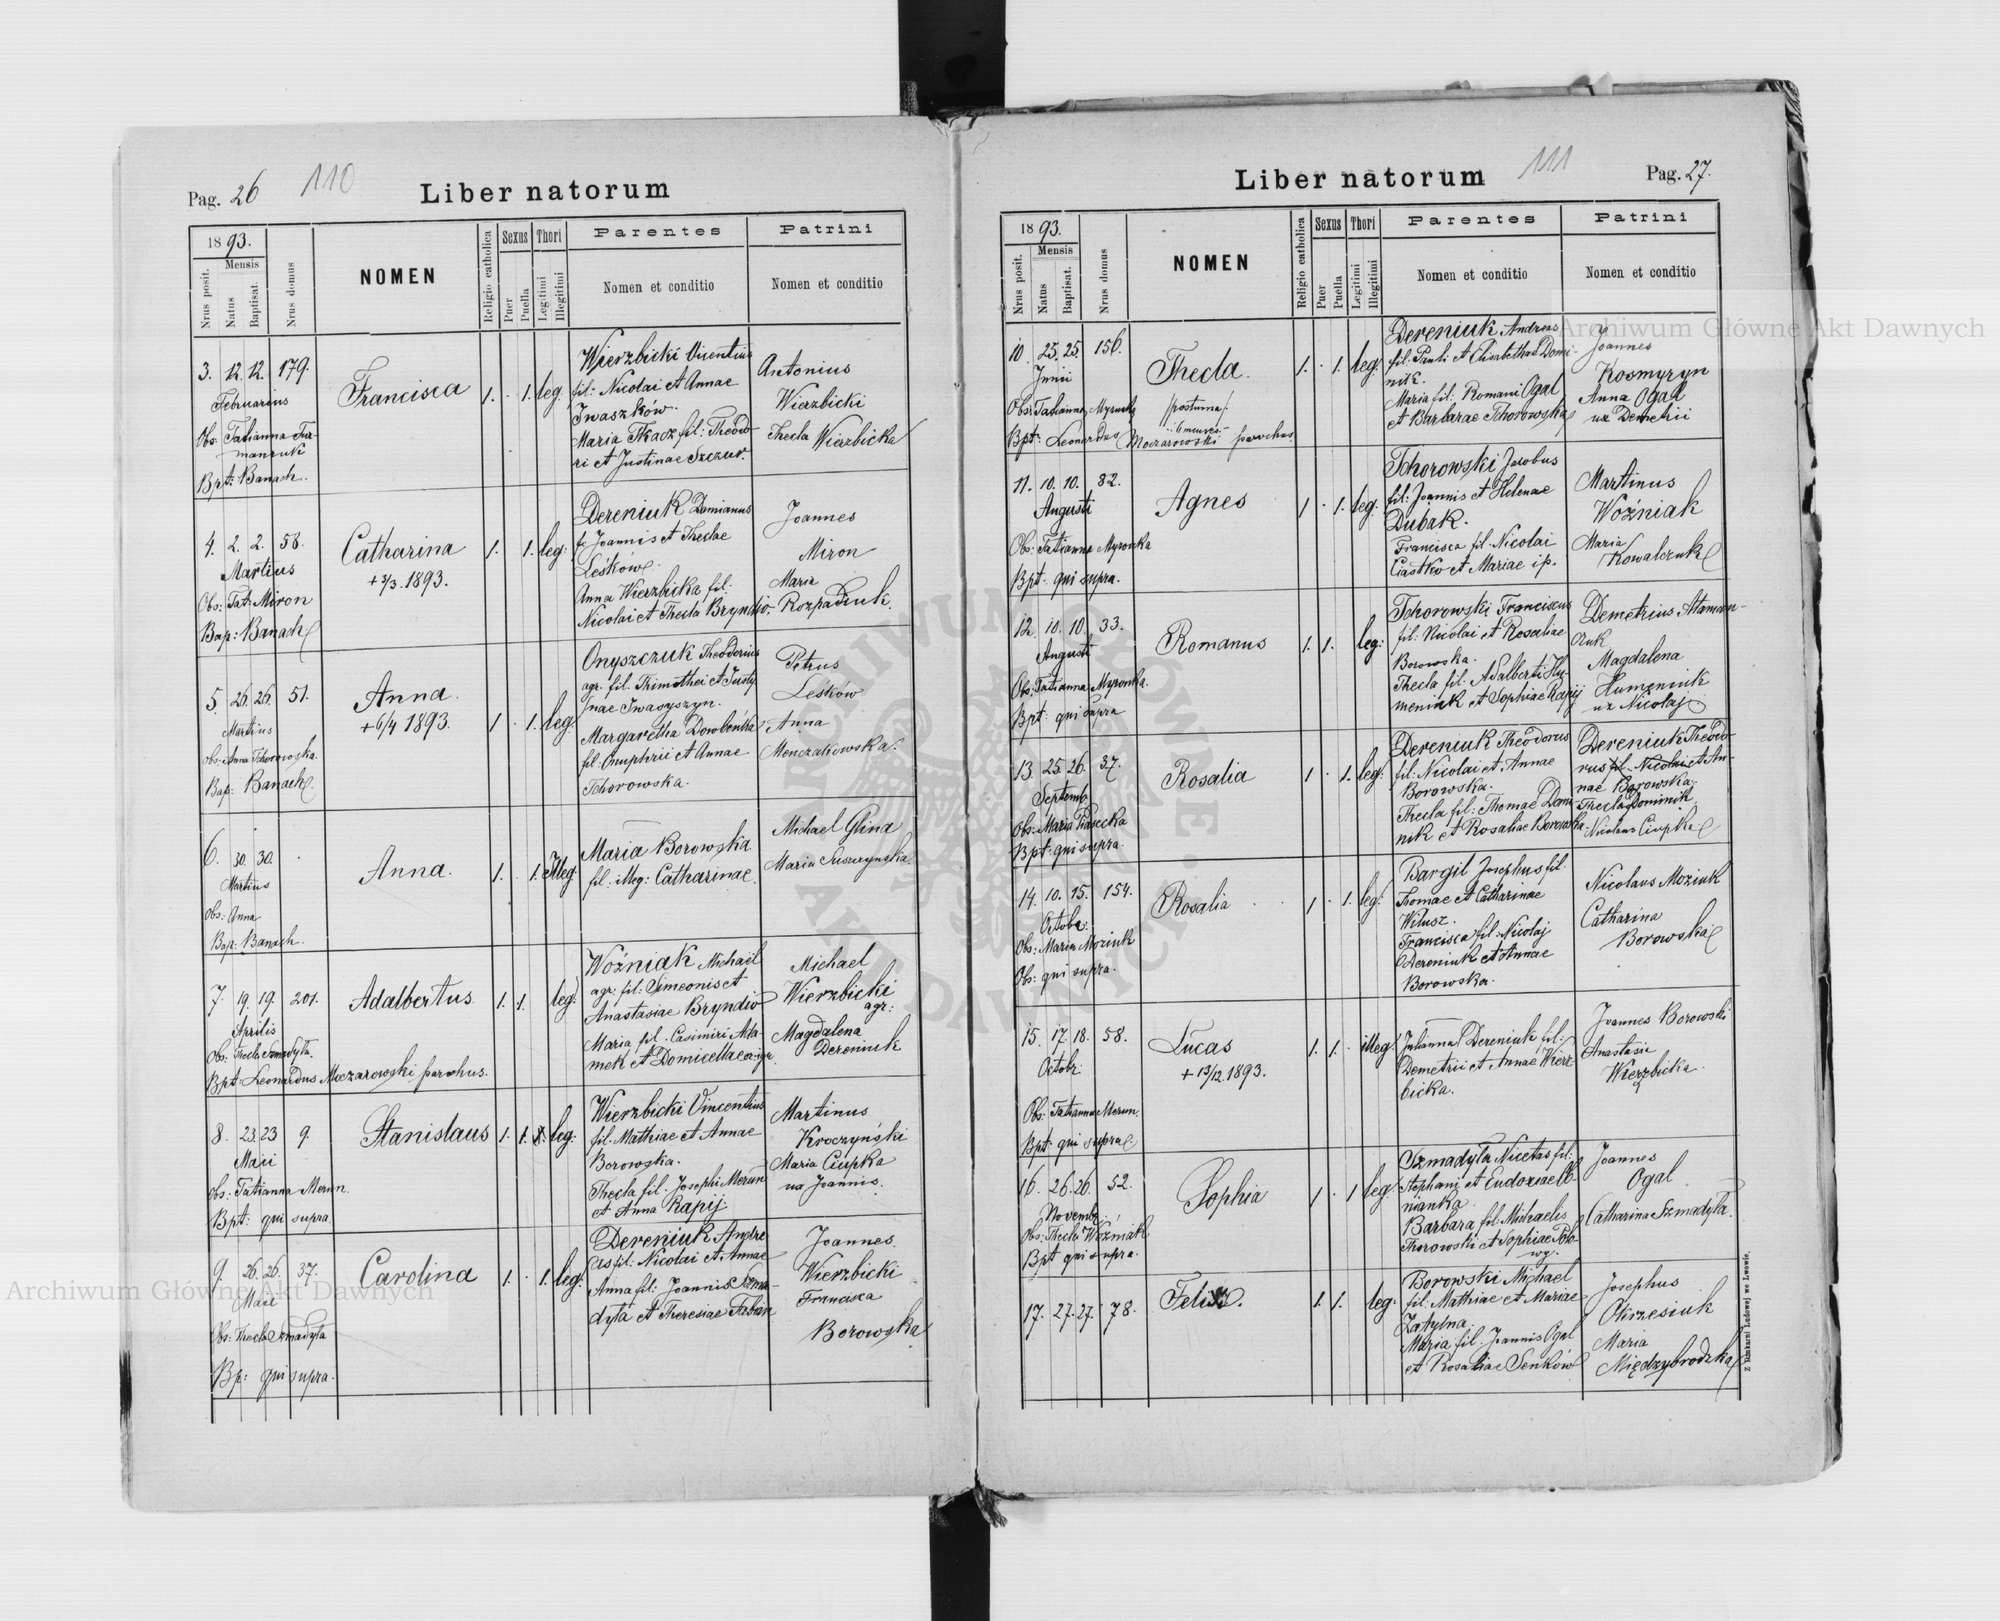 Pag. 26 110 Liber natorum
1893.
Nrus posit.
Mensis
Natus
Baptisat.
Nrus domus
NOMEN
Religio catholica
Sexus
Puer
Puella
Thori
Legitimi
Illegitimi
Parentes
Nomen et conditio
Patrini
Nomen et conditio
3. 12. 12. 179.
Februarius
Obs: Tatianna Fur-
maniuk
Bpt: Banach.
Francisca
1. 1. leg.
Wierzbicki Vicentius
fil: Nicolai et Annae
Iwaszków.
Maria Tkacz fil: Theodo-
ri et Justinae Szczur.
Antonius
Wierzbicki
Thecla Wierzbicka
4. 2. 2. 58.
Martius
Obs: Tat: Miron
Bap: Banach
Catharina
+ 3/3. 1893.
1. 1. leg:
Dereniuk Damianus
fi Joannis et Theclae
Leśków.
Anna Wierzbicka fil:
Nicolai et Thecla Bryndio
Joannes
Miron
Maria
Rozpadiuk.
5. 26. 26. 51.
Martius
obs: Anna Tchorowska.
Bap: Banach.
Anna.
+ 6/4 1893.
1 . 1. leg
Onyszczuk Theodorius
agr. fil. Timothei et Justy
nae Iwasyszyn.
Margaretha
fil. Onuphrii et Annae
Tchorowska.
Petrus
Leśków
Anna
Menczakowska.
6. 30. 30. .
Martius
Obs: Anna
Bap: Banach.
Anna.
1. . 1. Illeg.
Maria Borowska
fil: illeg: Catharinae.
Michael Glina
Maria Suszczynska.
7. 19. 19. 201.
Aprilis
Obs: Thecla Szmadyła.
Bpt: Leonardus Moczarowski parochus.
Adalbertus
1. 1. leg:
Woźniak Michaël
agr: fil: Simeonis et
Anastasiae Bryndio
Maria fil. Casimiri Ada-
mek et Domicella
Michael
Wierzbicki
agr:
Magdalena
Dereniuk
8. 23. 23 9.
Maii
Obs: Tatianna Merun.
Bpt: qui supra.
Stanislaus
1. 1. leg:
Wierzbicki Vincentius
fil. Mathiae et Annae
Borowska.
Thecla fil. Josephi Merun
et Anna Rapij
Martinus
Kroczyński
Maria Ciupka
ux Joannis.
9. 26. 26. 37.
Maii
Obs: Thecla Szmadyła
Bp: qui supra.
Carolina
1. . 1. leg:
Dereniuk Andre
as fil: Nicolai et Annae
Anna fil: Joannis Szma-
dyła et Theresiae Faban
Joannes.
Wierzbicki
Francisca
Borowska
Liber natorum 111 Pag. 27.
1893.
Nrus posit.
Mensis
Natus
Baptisat.
Nrus domus
NOMEN
Religio catholica
Sexus
Puer
Puella
Thori
Legitimi
Illegitimi
Parentes
Nomen et conditio
Patrini
Nomen et conditio
10. 25. 25. 156.
Junii
Obs: Tatianna Myronka
Bpt: Leonardus Moczarowski parochus.
Thecla.
/postuma/.
1. . 1. leg.
Dereniuk Andreas
fil. Pauli et Elisabethae Domi-
nik.
Maria fil: Romani Ogal
et Barbarae Tchorowska
Joannes
Kosmyryn
Anna Ogal
ux Demetrii
11. 10. 10. 32.
Augusti
Obs: Tatianna Myronka
Bpt: qui supra.
Agnes
1 . 1. leg:
Tchorowski Jacobus
fil: Joannis et Helenae
Dubak.
Francisca fil. Nicolai
Ciastko et Mariae ip.
Martinus
Woźniak
Maria
Kowalczuk
12. 10. 10. 33.
Augusti
Obs: Tatianna Myronka.
Bpt: qui supra
Romanus
1. 1. leg:
Tchorowski Franciscus
fil: Nicolai et Rosaliae
Borowska.
Thecla fil. Adalberti Hu-
meniuk et Sophiae Rapij
Demetrius Ataman-
czuk
Magdalena
Humeniuk
ux Nicolaj
13. 25. 26. 37.
Septemb.
Obs: Maria Piasecka
Bpt: qui supra.
Rosalia
1 . 1. leg:
Dereniuk Theodorus
fil: Nicolai et Annae
Borowska.
Thecla fil: Thomae Domi-
nik et Rosaliae Borowska
Dereniuk Theodo-
rus fil. Nicolai et An-
nae Borowska
Thecla Dominik
Nicolaus Ciupka
14. 10. 15. 154.
Octobr.
Obs: Maria Moziuk
Obs: qui supra.
Rosalia
1 . 1. leg:
Bargil Josephus fil.
Thomae et Catharinae
Witusz.
Francisca fil. Nicolaj
Dereniuk et Annae
Borowska.
Nicolaus Moziuk
Catharina
Borowska
15. 17. 18. 58.
Octobr
Obs: Tatianna Merun.
Bpt: qui supra
Lucas
+ 13/12. 1893.
1. 1. illeg
Julianna Dereniuk fil:
Demetrii et Annae Wierz
bicka.
Joannes Borowski
Anastasia
Wierzbicka.
16. 26. 26. 52.
Novembr.
Obs: Thecla Woźniak
Bpt qui supra.
Sophia
1 . 1 leg
Szmadyła Nicetas fil:
Stephani et Eudoxiae Ob-
nianka
Barbara fil. Michaelis
Thorowski et Sophiae
Joannes
Ogal
Catharina Szmadyła.
17. 27. 27. 78.
Felix.
1. 1. leg:
Borowski Michael
fil: Mathiae et Mariae
Zatylna.
Maria fil. Joannis Ogal
et Rosaliae Senków
Josephus
Okrzesiuk
Maria
Międzybrodzka
Z Drukarni Ludowej we Lwowie.
Archiwum Główne Akt Dawnych
Archiwum Główne Akt Dawnych
ARCHIWUM GŁÓWNE AKT DAWNYCH